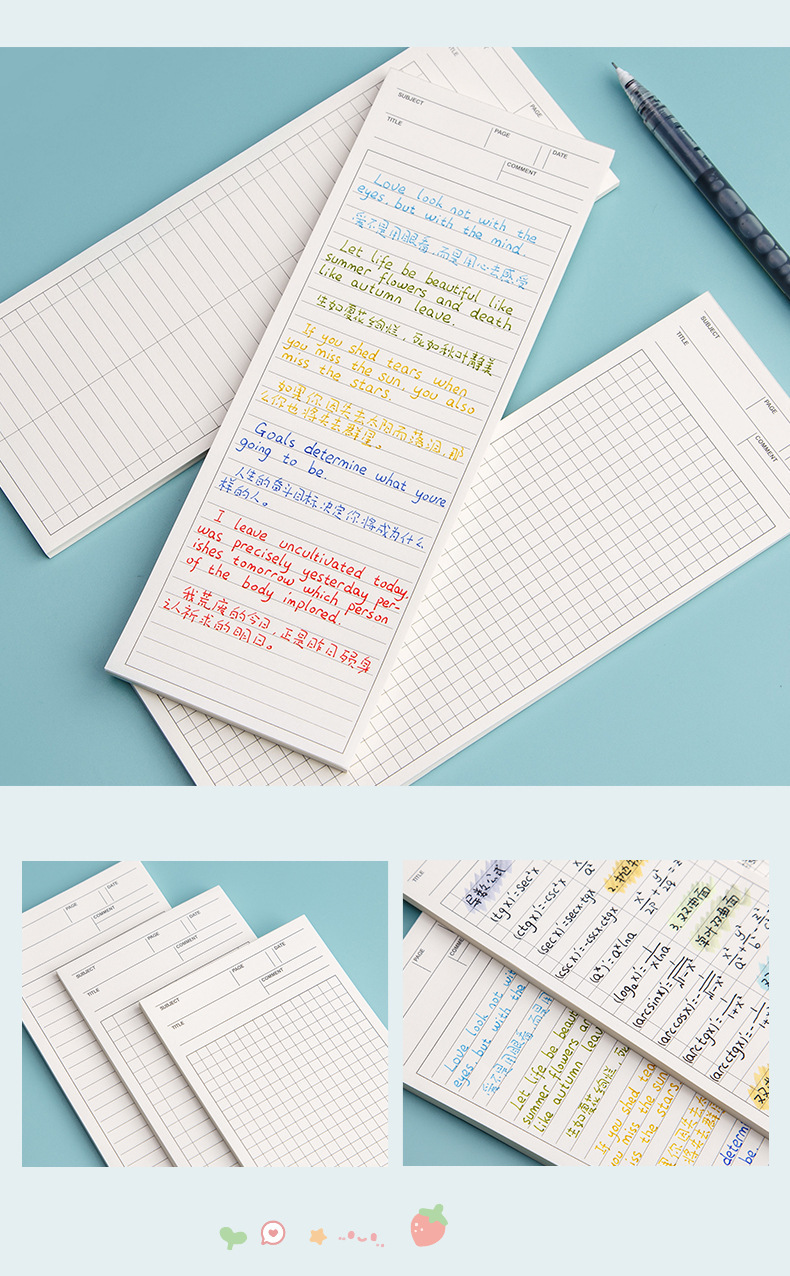 TITLE
PAGE
SUBJECT
PAGE
DATE
TITLE
COMMENT
Love look not with the
eyes, but with the mind.
爱不是用眼看,而是用心去感受
Let life be beautiful like
summer flowers and death
like autumn leave.
生如夏花绚烂,死如秋叶静美
If you shed tears when
you miss the sun, you also
miss the stars.
如果你因失去太阳而落泪,那
么你也将失去群星。
Goals determine what youre
going to be.
人生的奋斗目标决定你将成为什么
样的人。
I leave uncultivated today,
was precisely yesterday per-
ishes tomorrow which person
of the body implored.
我荒废的今日,正是昨日殒身
之人祈求的明日。
SUBJECT
TITLE
PAGE
COMMENT
PAGE
DATE
COMMENT
SUBJECT
PAGE
DATE
TITLE
COMMENT
SUBJECT
PAGE
DATE
TITLE
COMMENT
TITLE
导数公式
(tgx)'=sec²x
(ctgx)'=-csc²x
(secx)'=secx·tgx
(cscx)'=-cscx·ctgx
(aˣ)'=aˣlna
(logₐx)'=1/xlna
(arcsinx)'=1/√1-x²
(arccosx)'=-1/√1-x²
(arctgx)'=1/1+x²
(arcctgx)'=-1/1+
3.双曲面
单叶双曲面
PAGE
COMMENT
Love look not wit
eyes, but with the
爱不是用眼看,而是用
Let life be beaut
summer flowers an
like autumn leav
生如夏花绚烂,死
If you shed tea
you miss the sun
miss the stars.
determin
be.